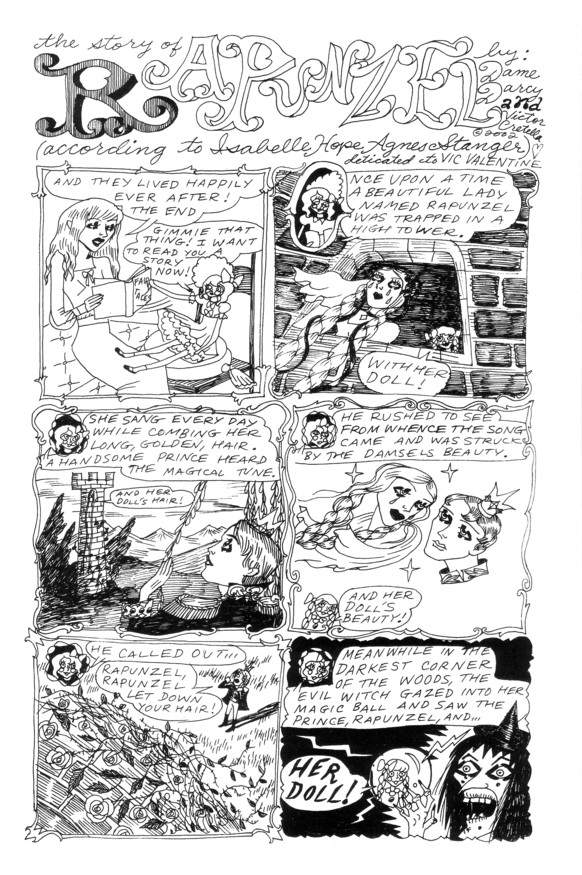 the story of
RAPUNZEL
by:
Dame
Darcy
and
Victor
Cretella
©2002
(according to Isabelle Hope Agnes Stanger)
deticated to VIC VALENTINE
AND THEY LIVED HAPPILY
EVER AFTER!
THE END
GIMMIE THAT
THING! I WANT
TO READ YOU A
STORY
NOW!
NCE UPON A TIME
A BEAUTIFUL LADY
NAMED RAPUNZEL
WAS TRAPPED IN A
HIGH TOWER.
WITH HER
DOLL!
SHE SANG EVERY DAY
WHILE COMBING HER
LONG, GOLDEN, HAIR.
A HANDSOME PRINCE HEARD
THE MAGICAL TUNE.
AND HER
DOLL'S HAIR!
HE RUSHED TO SEE
FROM WHENCE THE SONG
CAME AND WAS STRUCK
BY THE DAMSELS BEAUTY.
AND HER
DOLL'S
BEAUTY!
HE CALLED OUT...
RAPUNZEL,
RAPUNZEL
LET DOWN
YOUR HAIR!
MEANWHILE IN THE
DARKEST CORNER
OF THE WOODS, THE
EVIL WITCH GAZED INTO HER
MAGIC BALL AND SAW THE
PRINCE, RAPUNZEL, AND...
HER
DOLL!